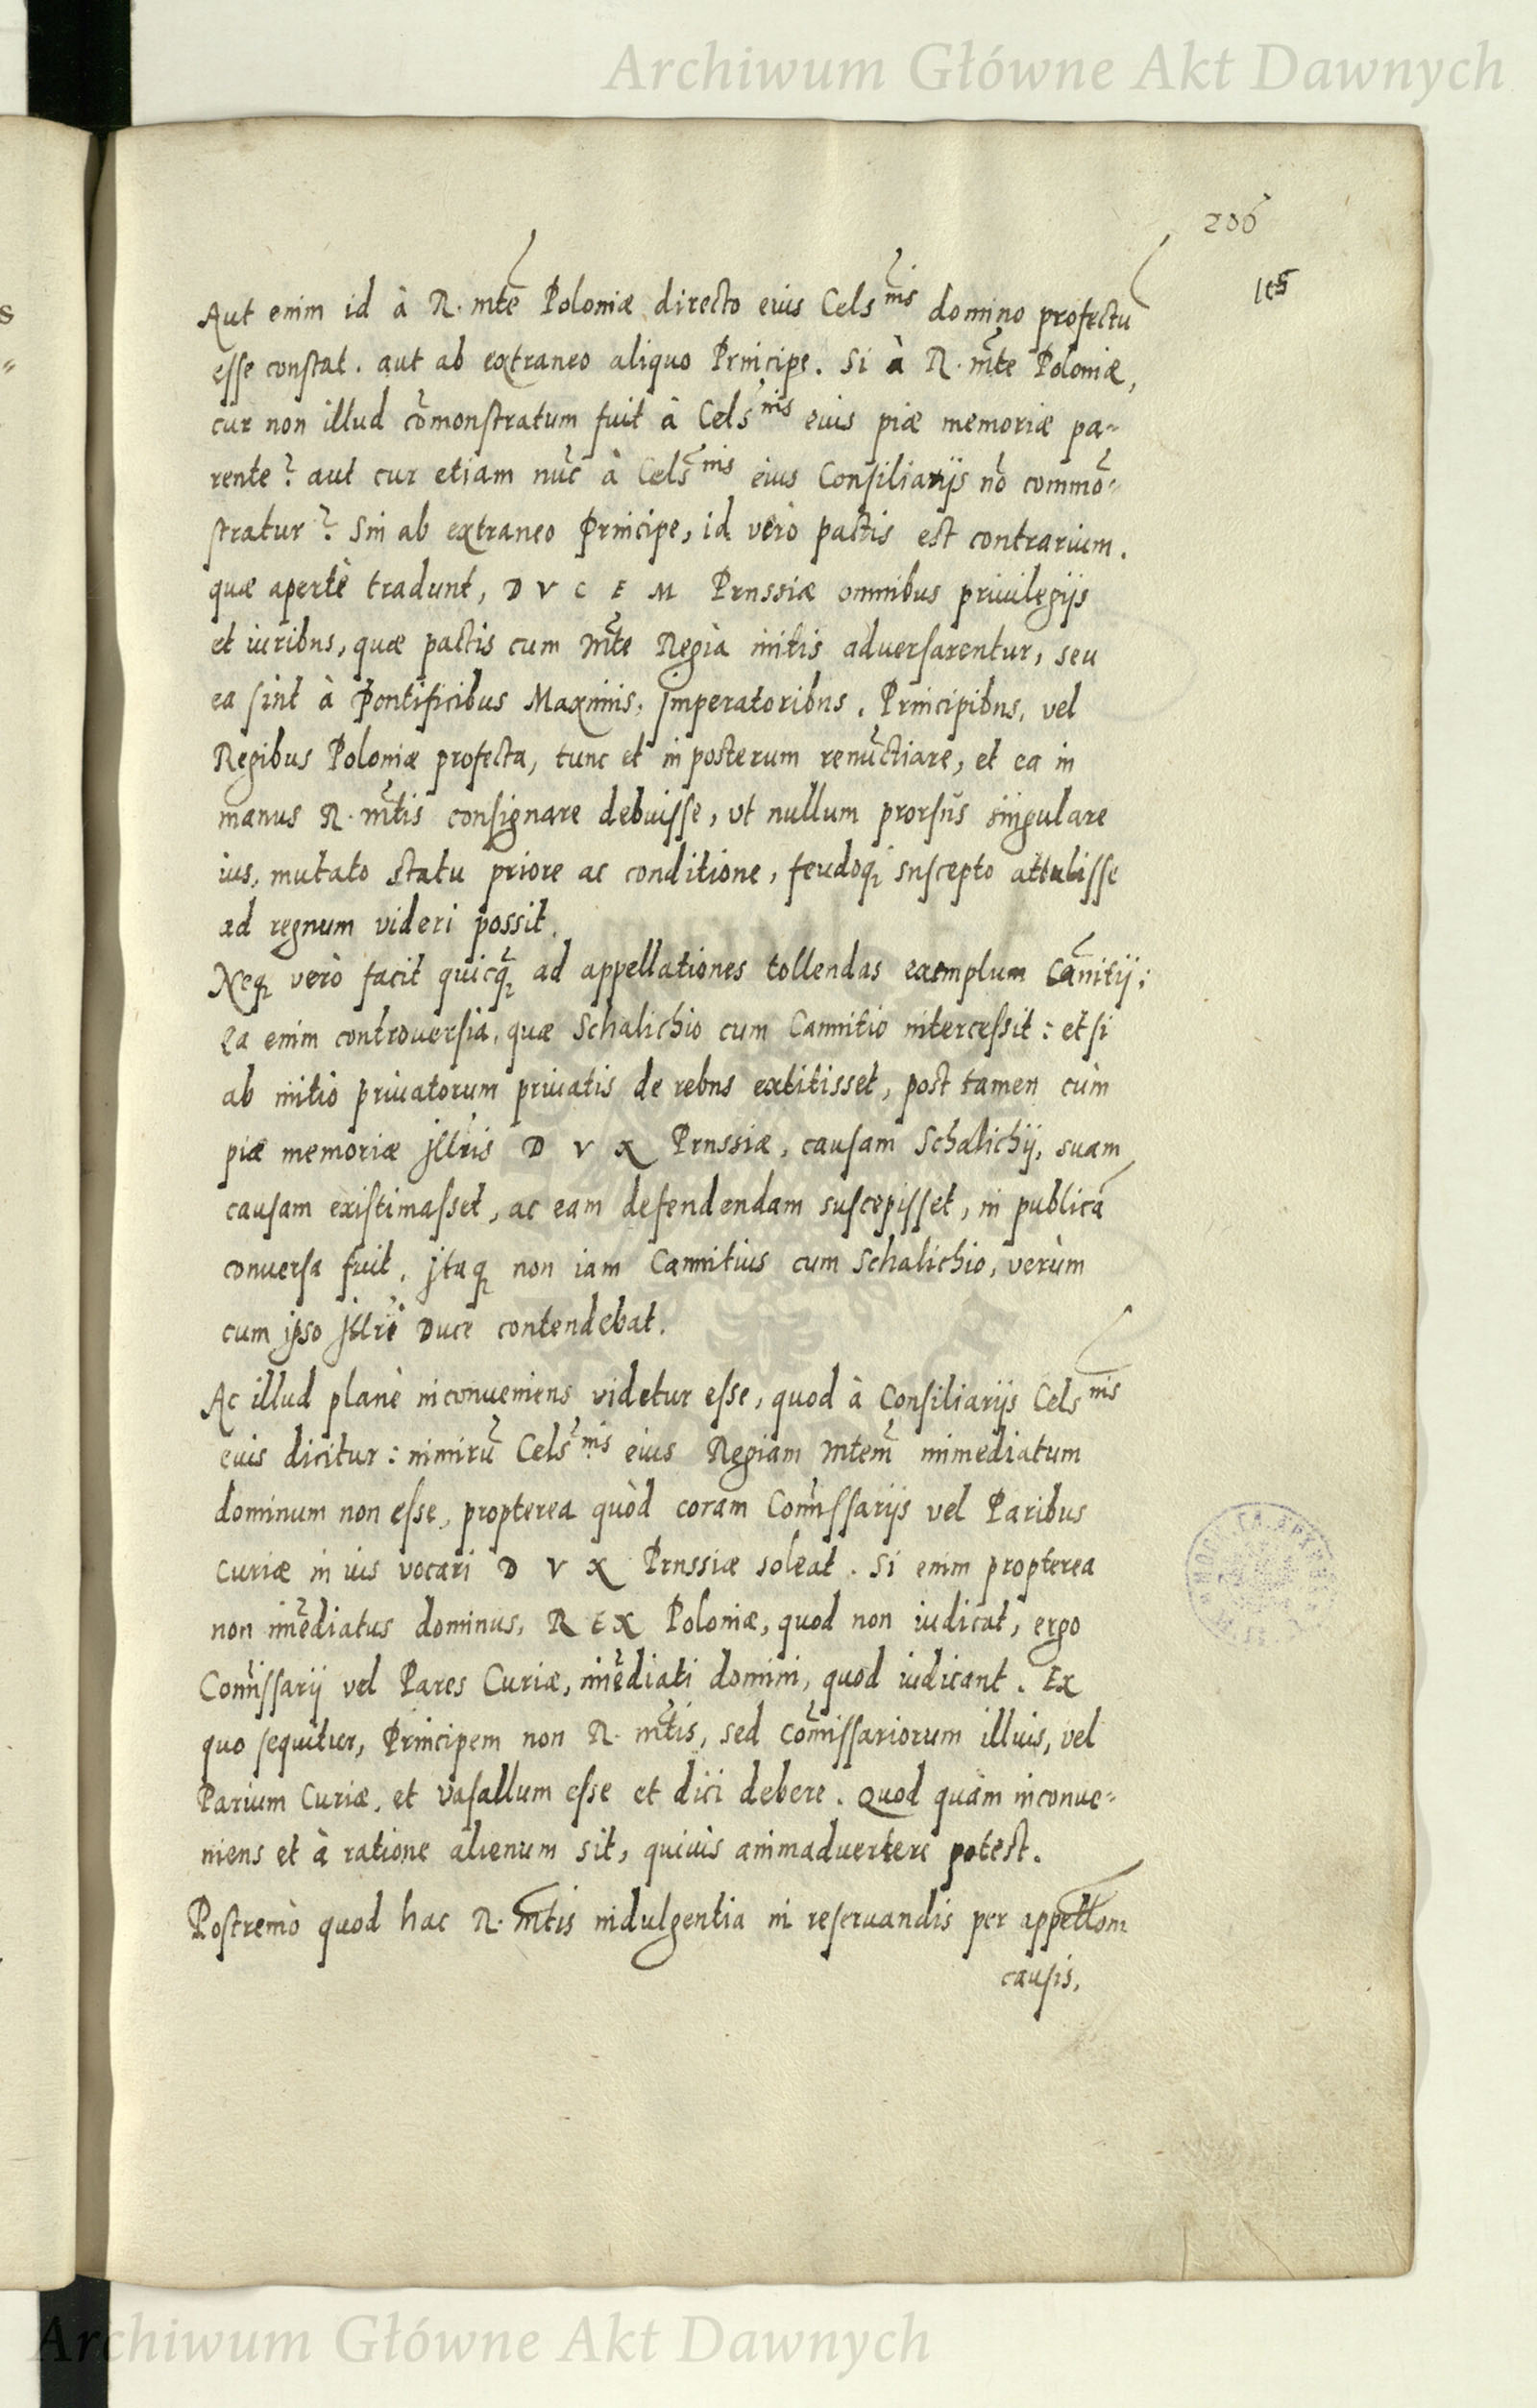 Archiwum Główne Akt Dawnych
206
165
Aut enim id à R. mte Poloniæ directo eius Cels^nis domino profectũ
esse constat. aut ab extraneo aliquo Principe. Si à R. mte Poloniæ,
cur non illud cõmonstratum fuit à Cels^nis eius piæ memoriæ pa-
rente? aut cur etiam nũc à Cels^nis eius Consiliarijs nõ commõ-
stratur? Sin ab extraneo Principe, id verò pactis est contrarium.
quæ apertè tradunt, D V C E M Prussiæ omnibus priuilegijs
et iuribus, quæ pactis cum Mte Regia initis aduersarentur, seu
ea sint à Pontificibus Maximis, Imperatoribus, Principibus, vel
Regibus Poloniæ profecta, tunc et in posterum renũctiare, et ea in
manus R. mtis consignare debuisse, vt nullum prorsùs singulare
ius, mutato statu priore ac conditione, feudoq; suscepto attulisse
ad regnum videri possit.
Neq; verò facit quicq̃; ad appellationes tollendas exemplum Cãnitij:
Ea enim controuersia, quæ Schalichio cum Cannitio intercessit: etsi
ab initio priuatorum priuatis de rebus extitisset, post tamen cùm
piæ memoriæ Jllris D V X Prussiæ, causam Schalichij, suam
causam existimasset, ac eam defendendam suscepisset, in publicã
conuersa fuit. Jtaq; non iam Cannitius cum Schalichio, verùm
cum ipso Jllri Duce contendebat.
Ac illud planè inconueniens videtur esse, quod à Consiliarijs Cels^nis
eius dicitur: nimirũ Cels^nis eius Regiam Mtem immediatum
dominum non esse, propterea quòd coram Com̃issarijs vel Paribus
Curiæ in ius vocari D V X Prussiæ soleat. Si enim propterea
non im̃ediatus dominus, R E X Poloniæ, quod non iudicat, ergo
Com̃issarij vel Pares Curiæ, im̃ediati domini, quod iudicant. Ex
quo sequitur, Principem non R. mtis, sed Com̃issariorum illius, vel
Parium Curiæ, et vasallum esse et dici debere. Quod quàm inconue-
niens et à ratione alienum sit, quiuis animaduertere potest.
Postremò quod hac R. mtis indulgentia in reseruandis per appellom
causis,
Archiwum Główne Akt Dawnych